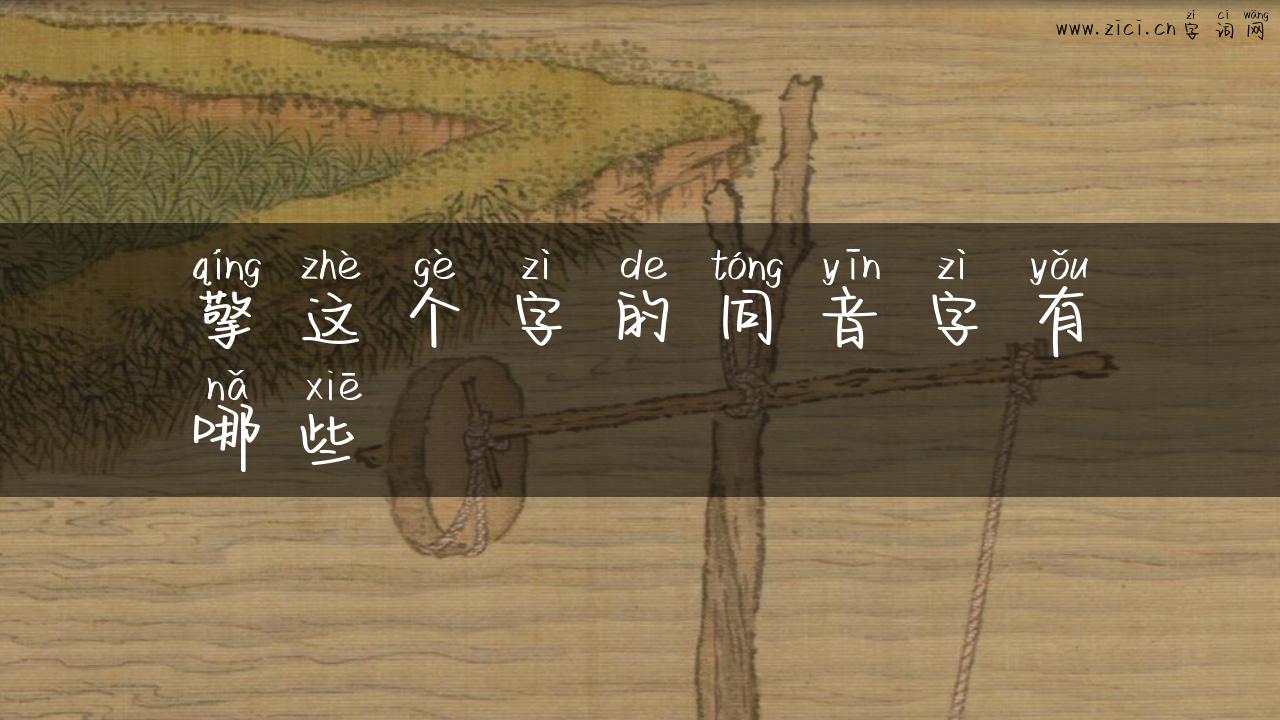 zì cí wǎng
www.zici.cn 字 词 网
qíng zhè gè zì de tóng yīn zì yǒu
擎 这 个 字 的 同 音 字 有
nǎ xiē
哪 些